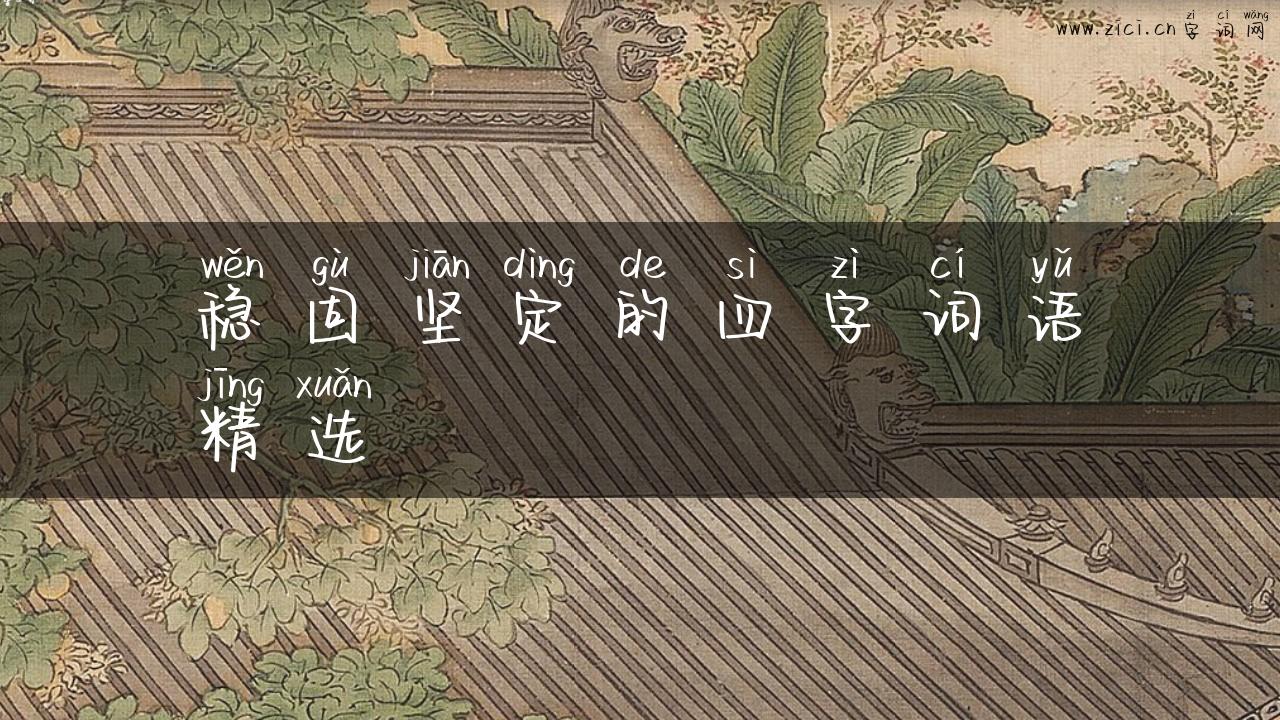 zì cí wǎng
www.zici.cn 字词网
wěn gù jiān dìng de sì zì cí yǔ
稳固坚定的四字词语
jīng xuǎn
精选